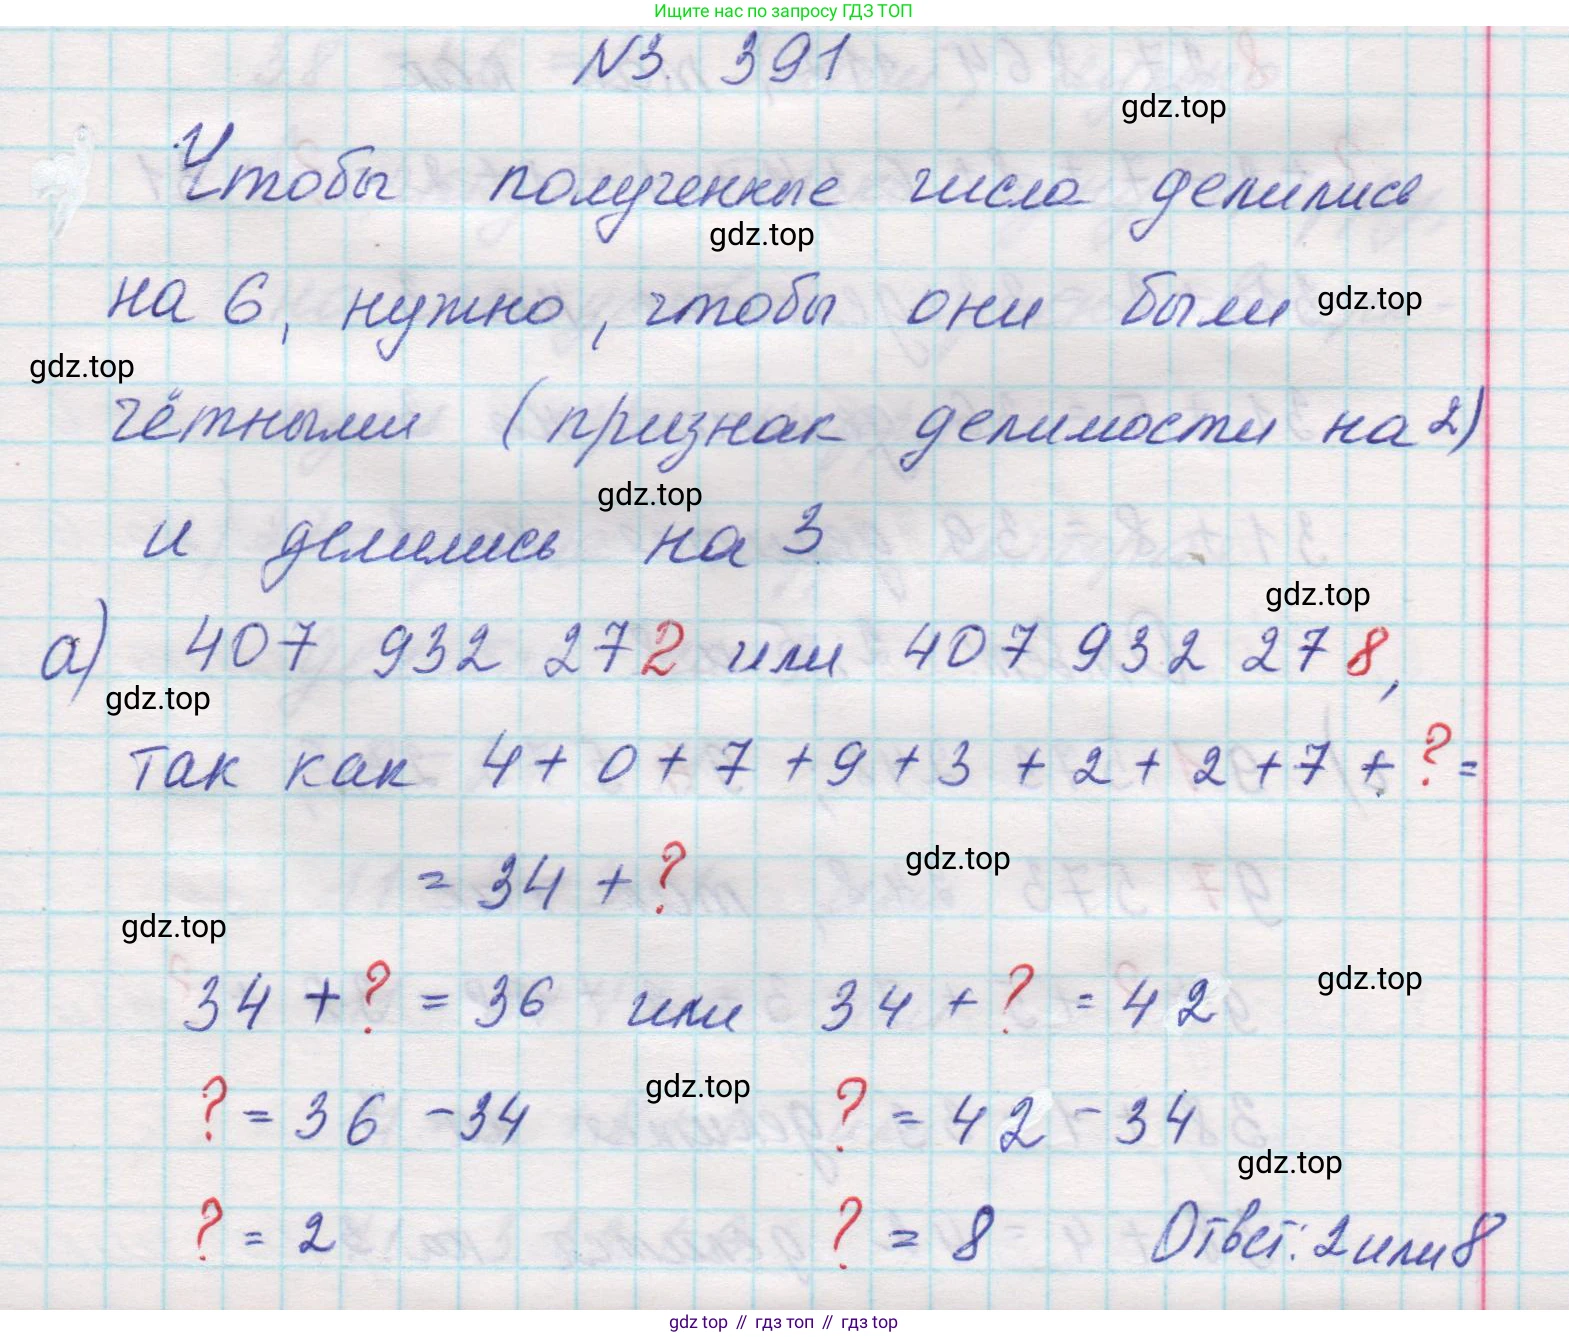 Ищите нас по запросу ГДЗ ТОП
№3. 391
gdz.top
Чтобы полученные числа делились
gdz.top
на 6, нужно, чтобы они были
gdz.top
gdz.top
чётными (признак делимости на 2)
gdz.top
и делились на 3
gdz.top
а) 407 932 272 или 407 932 278,
gdz.top
так как 4+0+7+9+3+2+2+7+?=
=34+?
gdz.top
gdz.top
34+?=36 или 34+?=42
gdz.top
?=36-34 ?=42-34
gdz.top
gdz.top
?=2 ?=8 Ответ: 2 или 8
gdz.top // гдз топ // gdz.top